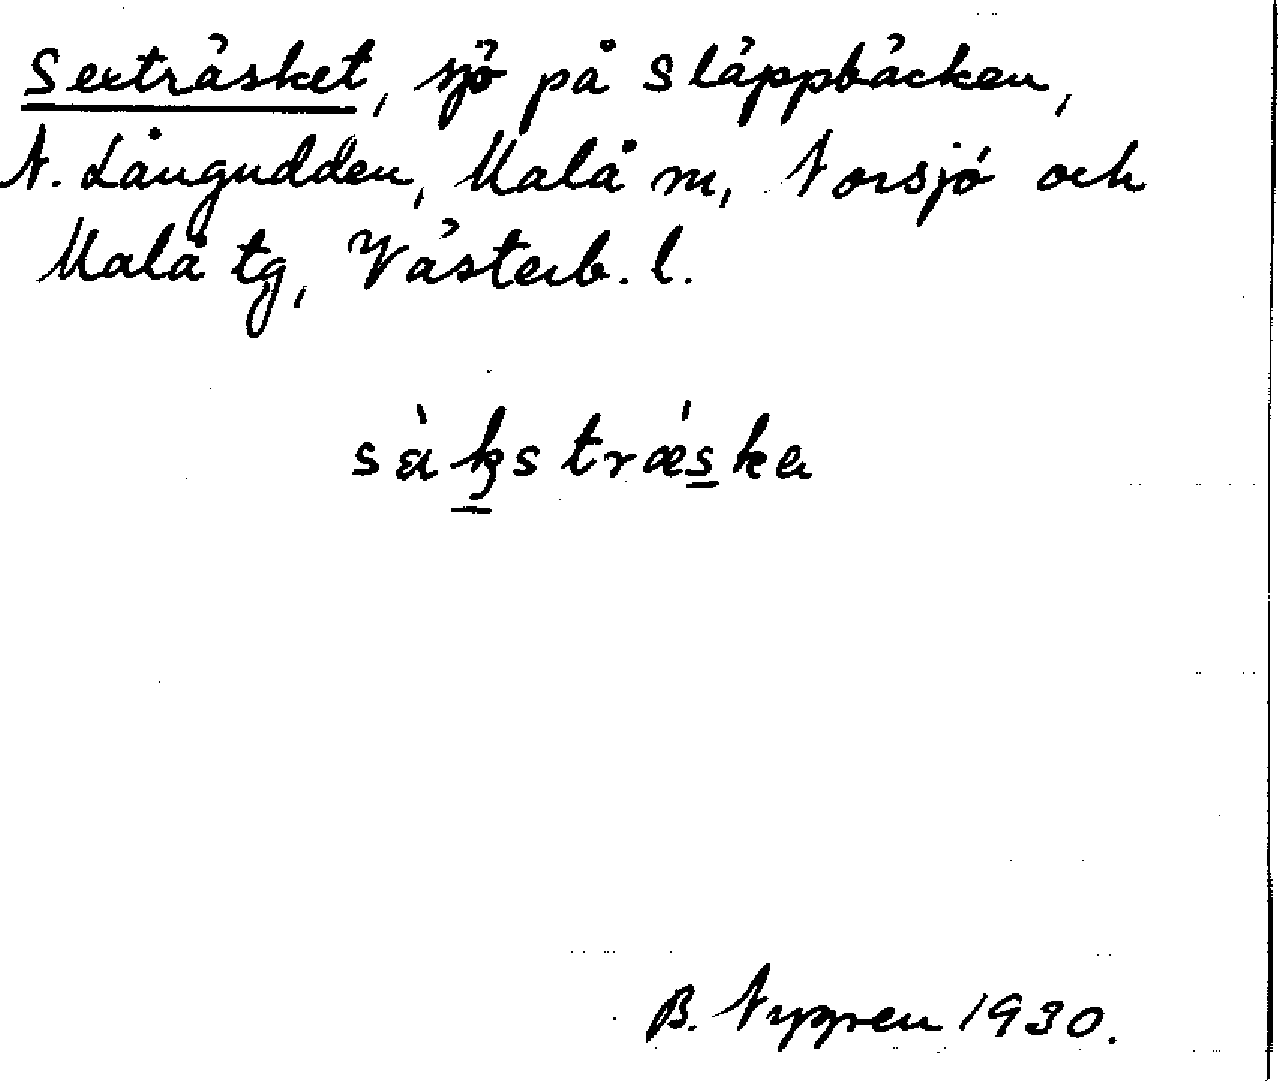 Sexträsket, sjö på Släppbäcken,
N. Långudden, Malå m, Norsjö och
Malå tg, Västerb. l.
sàkstræ´ska
B. Nygren 1930.